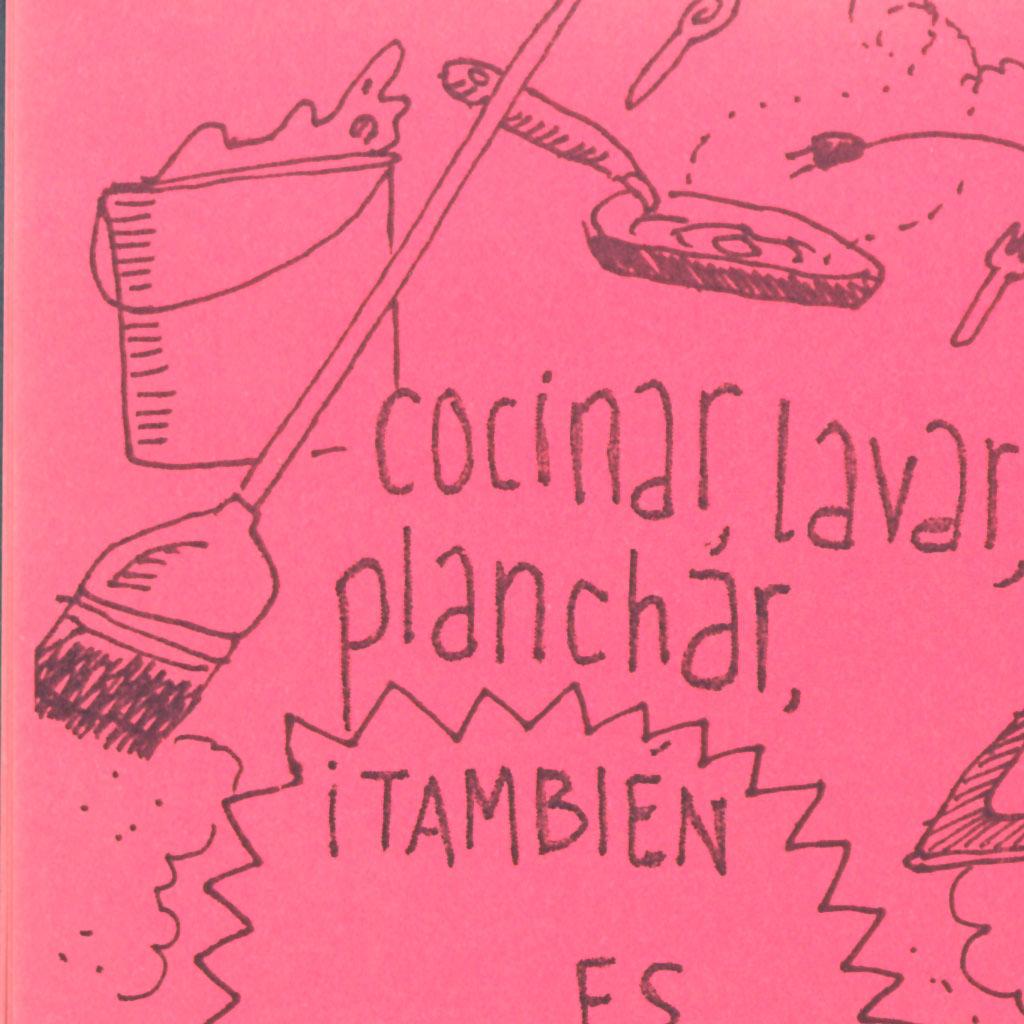 cocinar lavar,
planchar,
¡TAMBIÉN
ES